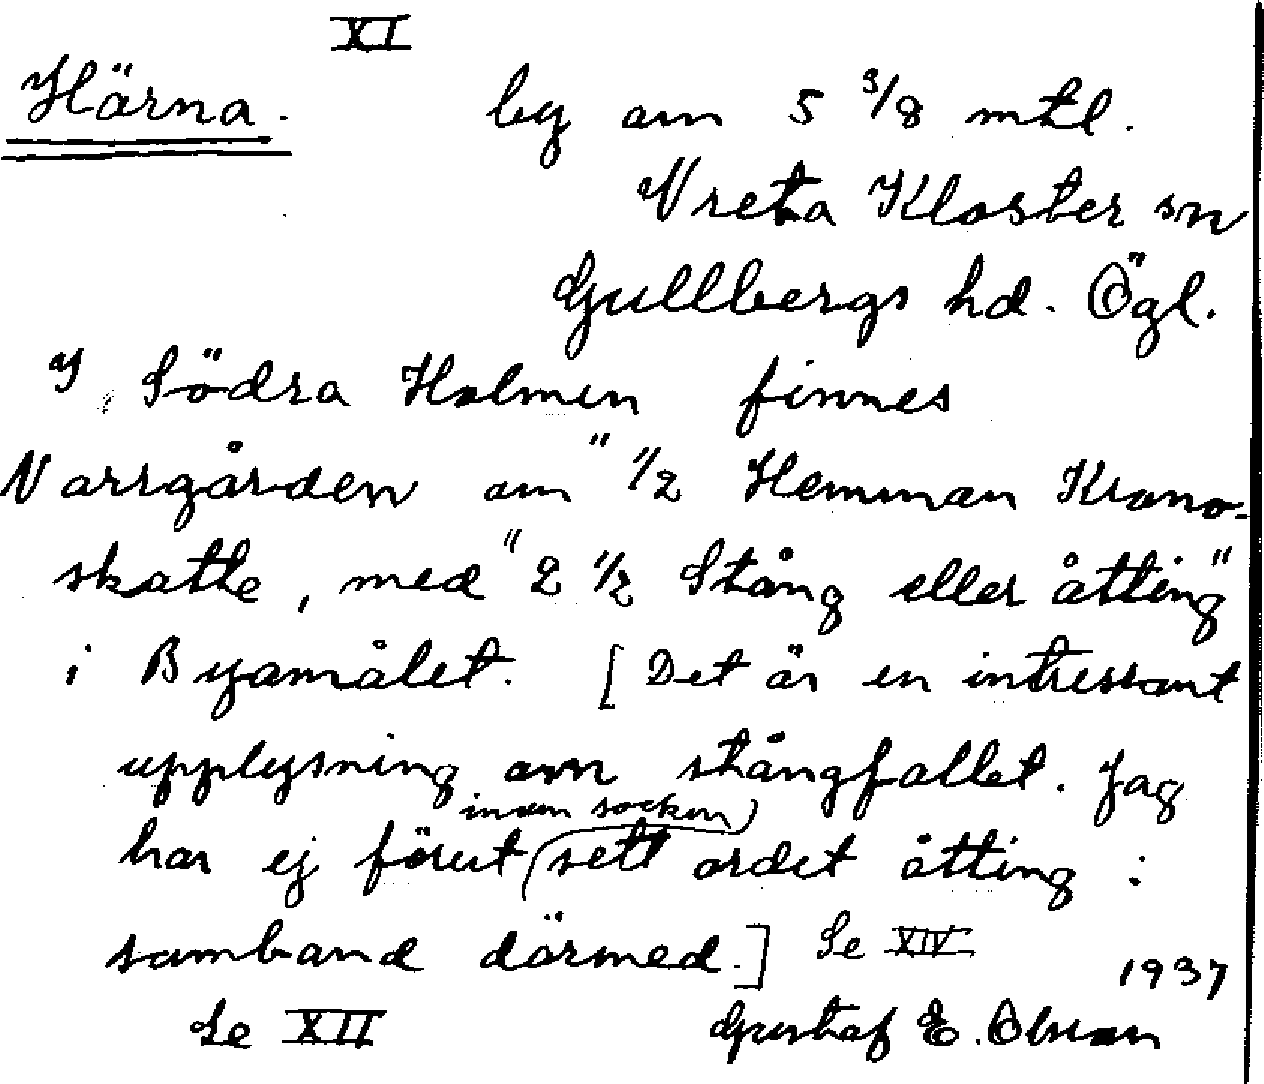 XI
Härna. by om 5 3/8 mtl.
Vreta Kloster sn
Gullbergs hd. Ögl.
I Södra Holmen finnes
Norrgården om "1/2 Hemman Krono-
skatte, med "2 1/2 Stång eller åtting"
i Byamålet. [Det är en intressant
upplysning om stångfallet. Jag
inom socken
har ej förut sett ordet åtting i
samband därmed.] Se XIV
1937
Se XII Gustaf E. Olsson